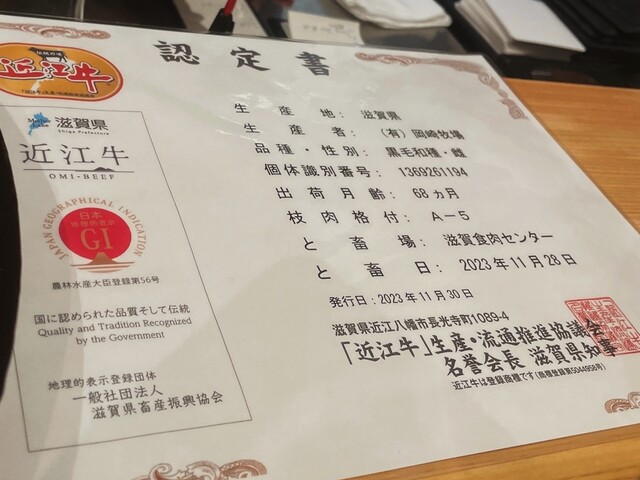 認定書
近江牛
滋賀県
Shiga Prefecture
近江牛
OMI-BEEF
JAPAN GEOGRAPHICAL INDICATION
日本
地理的表示
GI
農林水産大臣登録第56号
国に認められた品質そして伝統
Quality and Tradition Recognized
by the Government
地理的表示登録団体
一般社団法人
滋賀県畜産振興協会
生産地: 滋賀県
生産者: (有)岡崎牧場
品種・性別: 黒毛和種・雌
個体識別番号: 1369261194
出荷月齢: 68ヵ月
枝肉格付: A-5
と畜場: 滋賀食肉センター
と畜日: 2023年11月28日
発行日:2023年11月30日
滋賀県近江八幡市長光寺町1089-4
「近江牛」生産・流通推進協議会
名誉会長 滋賀県知事
近江牛は登録商標です(商標登録第5044958号)